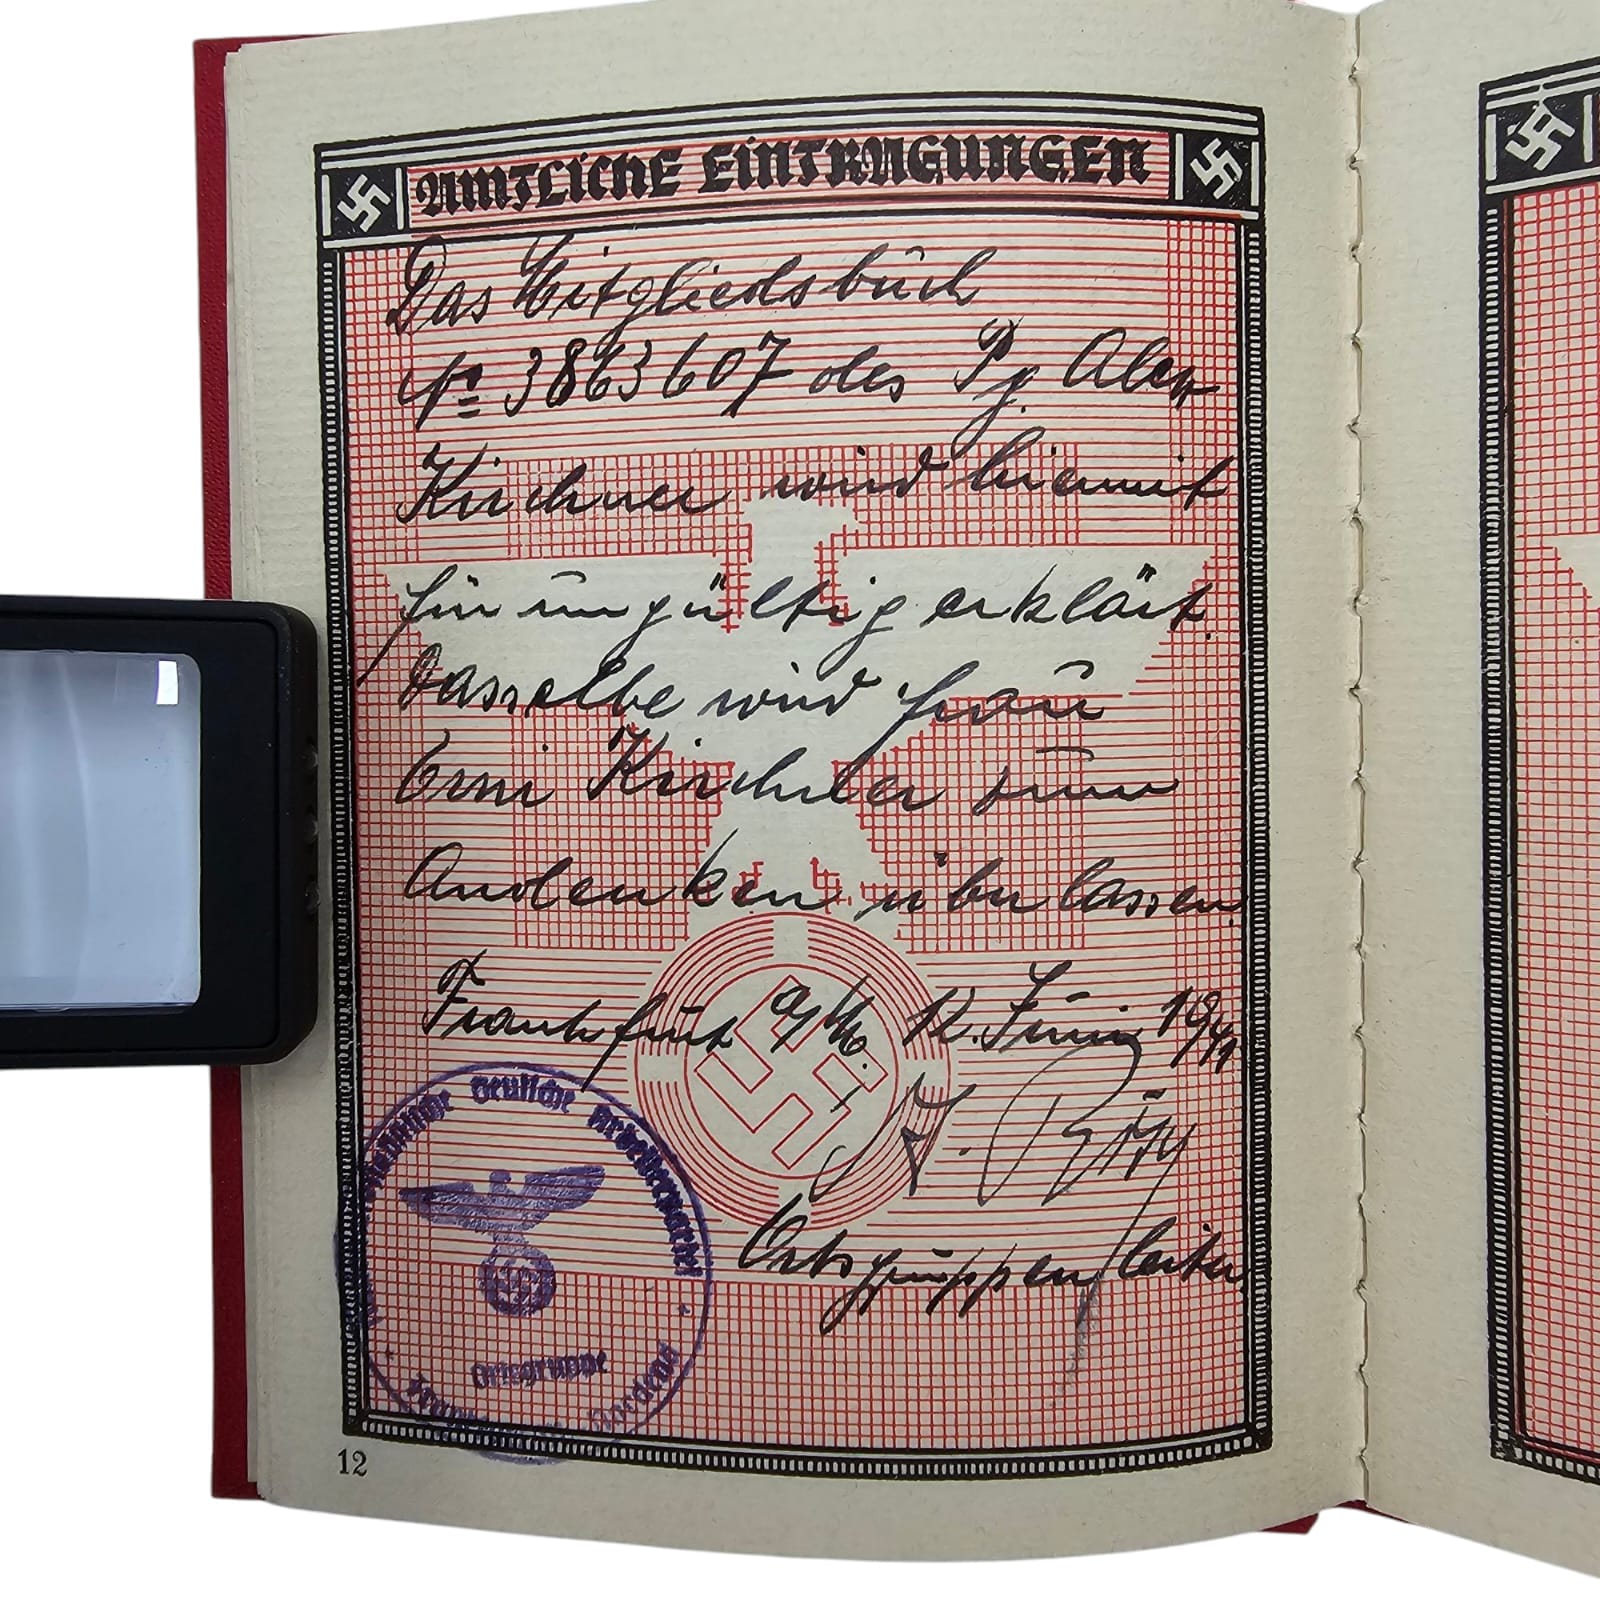 AMTLICHE EINTRAGUNGEN
Das Mitgliedsbuch
No 3863607 des Pg. Alex
Kirchner wird hiermit
für ungültig erklärt.
Dasselbe wird Frau
Erni Kirchner zum
Andenken überlassen
Frankfurt a/M. 12. Juni 1941
Ortsgruppenleiter
Deutsche Arbeiterpartei
Ortsgruppe
Nordend
12